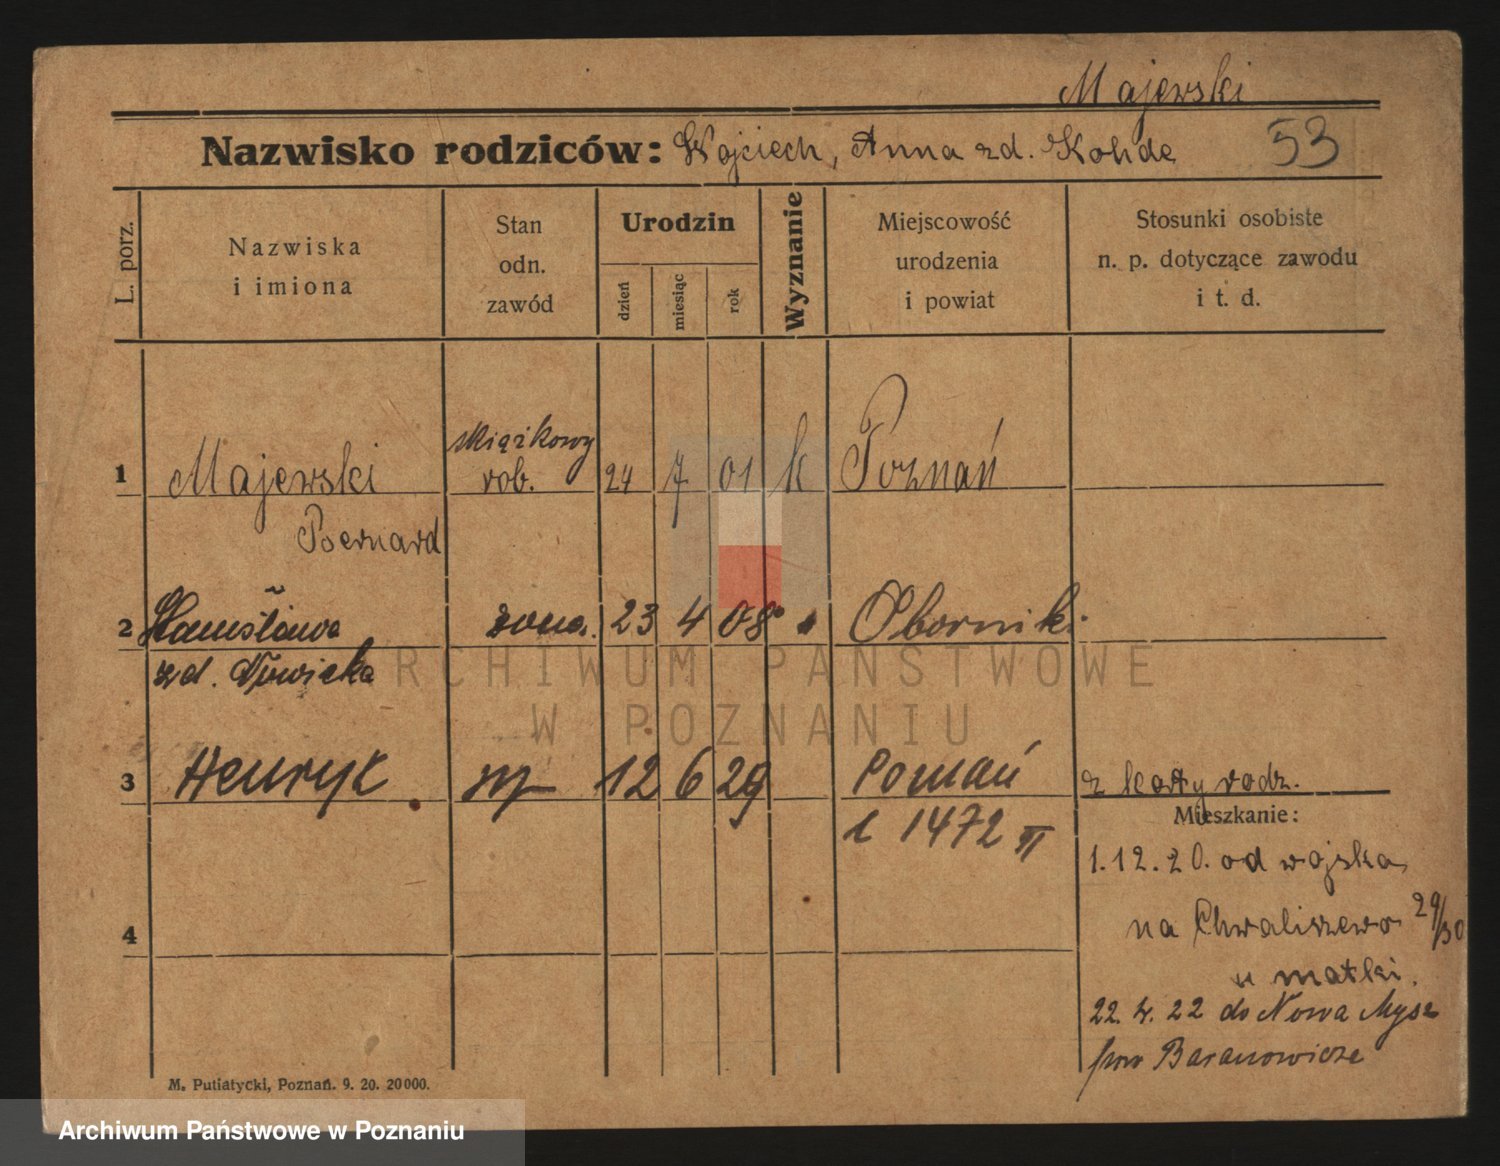 Majewski
Nazwisko rodziców: Wojciech, Anna zd. Kohde 53
L. porz.
Nazwiska
i imiona
Stan
odn.
zawód
Urodzin
dzień
miesiąc
rok
Wyznanie
Miejscowość
urodzenia
i powiat
Stosunki osobiste
n. p. dotyczące zawodu
i t. d.
1 Majewski rob. 24 7 01 k Poznań
Bernard
2 Stanisława żona 23 4 08 Oborniki
zd. Nowicka
3 Henryk 12 6 29 Poznań z karty rodz.
1472 II
Mieszkanie:
1.12.20. od wojska
na Chwaliszewo 29/30
u matki.
4
22. 4. 22 do Nowa Mysz
pow Baranowicze
M. Putiatycki, Poznań. 9. 20. 20000.
ARCHIWUM PAŃSTWOWE
W POZNANIU
Archiwum Państwowe w Poznaniu